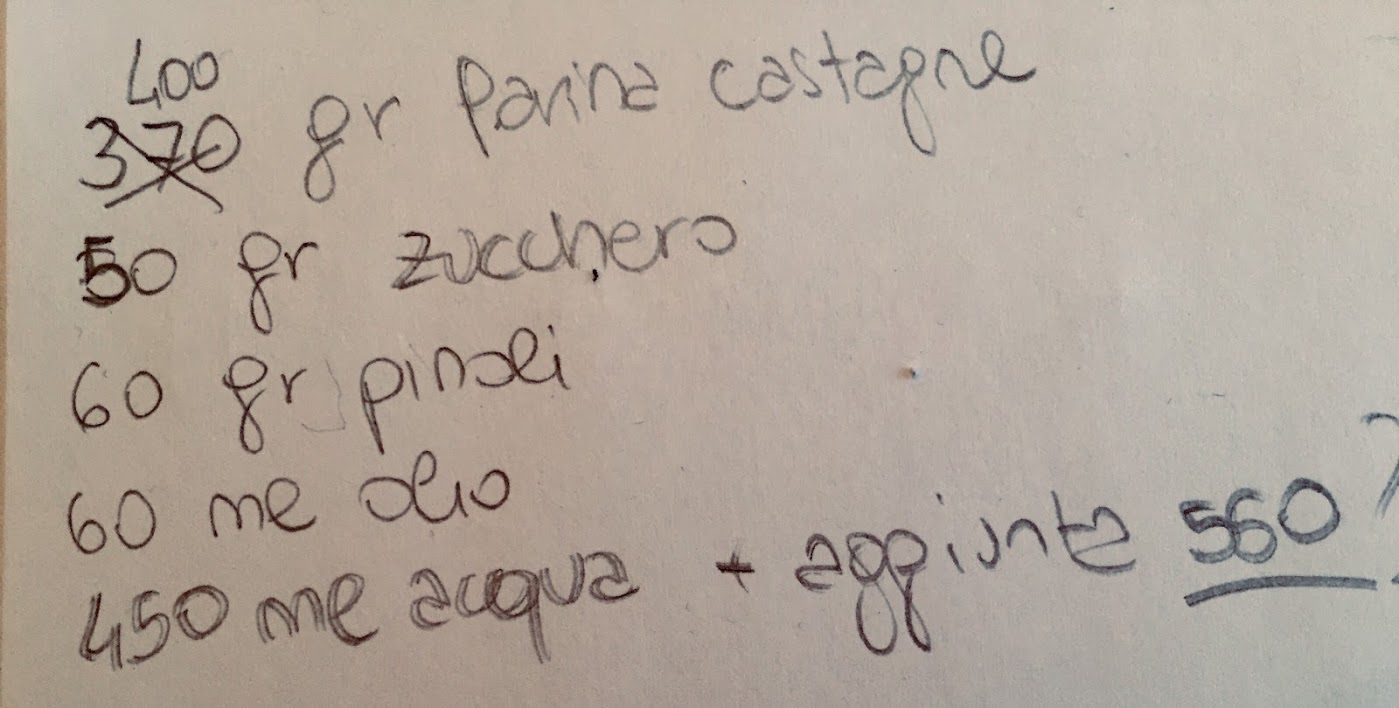 400
370 gr farina castagne
50 gr zucchero
60 gr pinoli
60 ml olio
450 ml acqua + aggiunta 560?